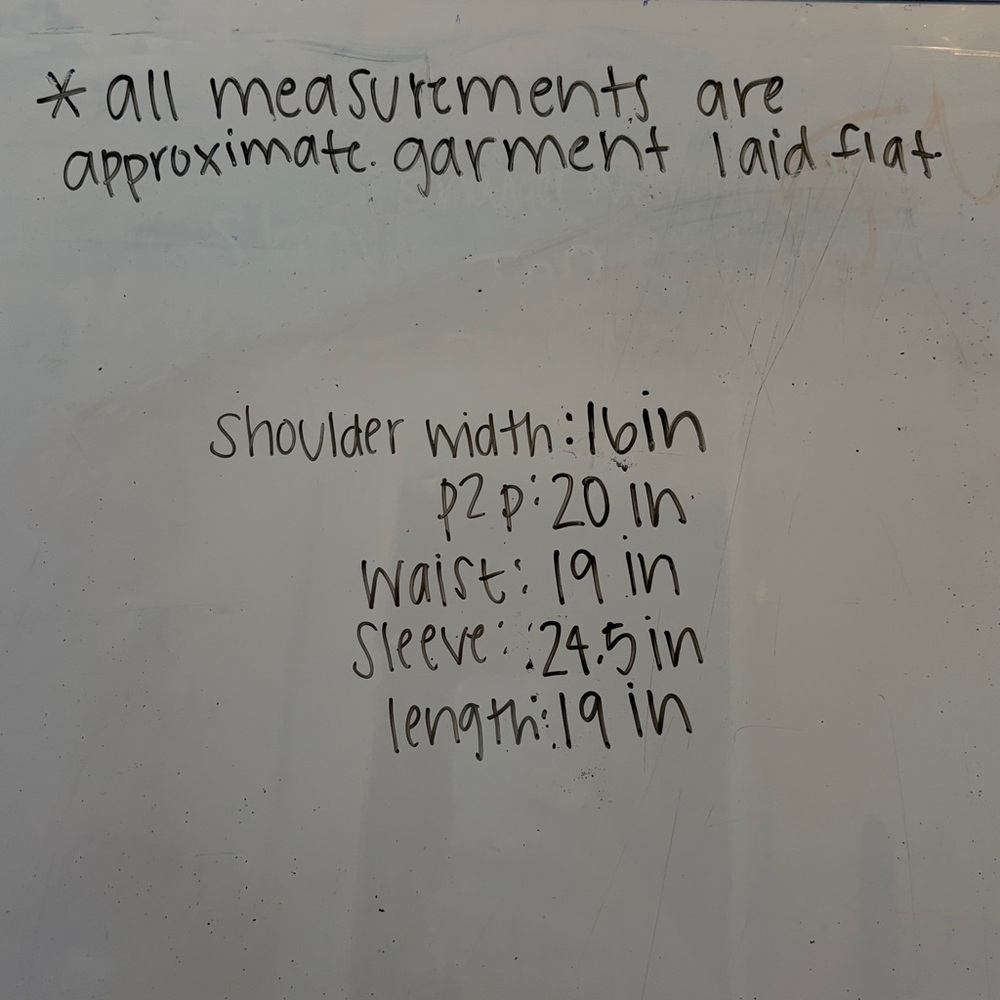 * all measurements are
approximate. garment laid flat.
shoulder width: 16in
p2p: 20 in
waist: 19 in
sleeve: 24.5 in
length: 19 in